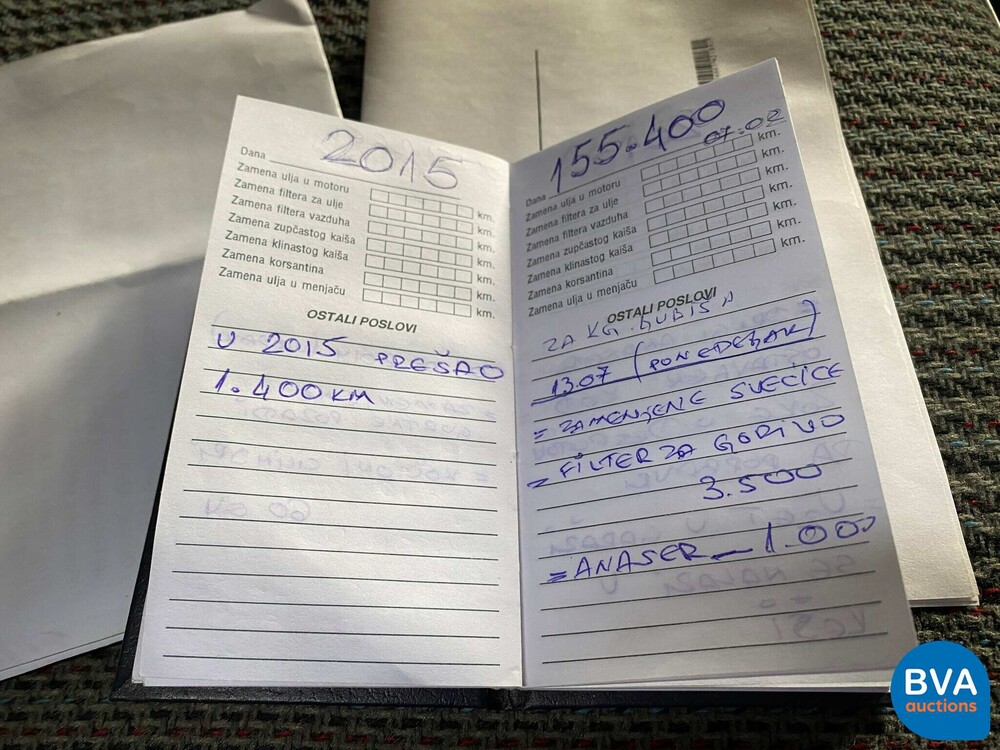 2015
Dana
Zamena ulja u motoru km.
Zamena filtera za ulje km.
Zamena filtera vazduha km.
Zamena zupčastog kaiša km.
Zamena klinastog kaiša km.
Zamena korsantina km.
Zamena ulja u menjaču km.
OSTALI POSLOVI
U 2015 PREŠAO
1.400 KM
155.400
07.02
Dana
Zamena ulja u motoru km.
Zamena filtera za ulje km.
Zamena filtera vazduha km.
Zamena zupčastog kaiša km.
Zamena klinastog kaiša km.
Zamena korsantina km.
Zamena ulja u menjaču km.
OSTALI POSLOVI
ZA KG.
13.07 (PONEDELJAK)
= ZAMENJENE SVEĆICE
= FILTER ZA GORIVO
3.500
= ANASER - 1.000
BVA
auctions